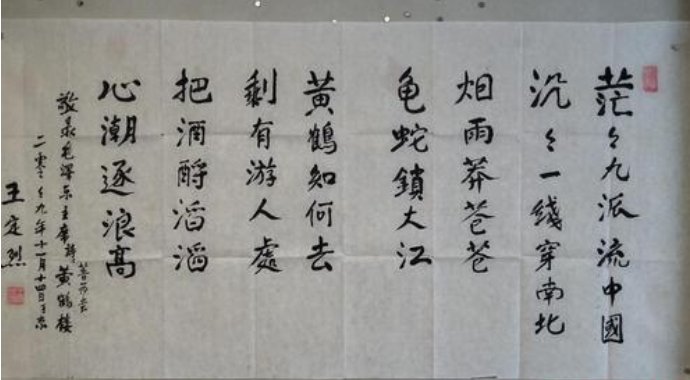 茫々九派流中國
沉々一綫穿南北
烟雨莽苍苍
龟蛇鎖大江
黄鶴知何去
剩有游人處
把酒酹滔滔
心潮逐浪高
敬录毛澤东主席 菩萨蛮 黄鶴楼
二零々九年十一月十四日于京
王定烈